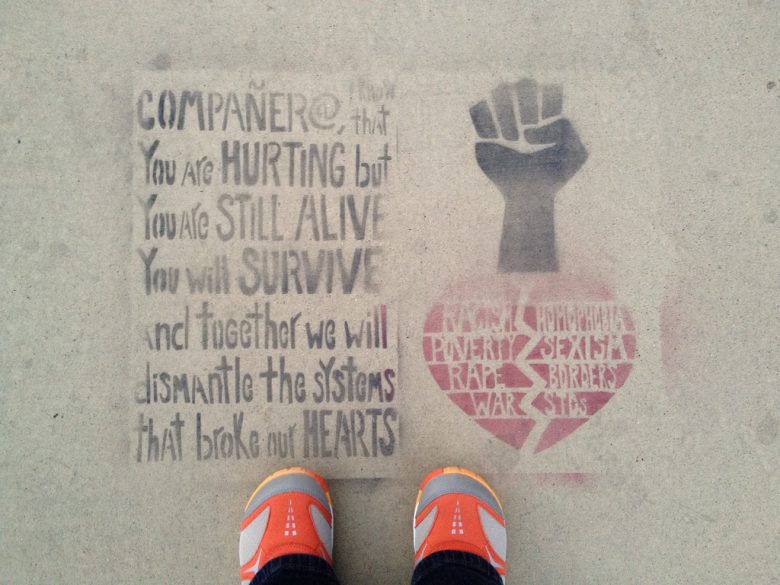 COMPAÑER@, I KNOW that
You are HURTING but
You are STILL ALIVE
You will SURVIVE
And together we will
dismantle the systems
that broke our HEARTS
RACISM HOMOPHOBIA
POVERTY SEXISM
RAPE BORDERS
WAR STIs